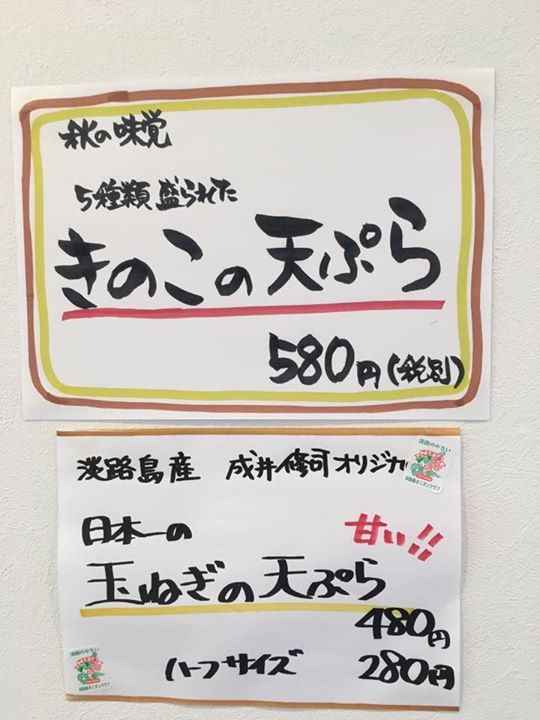 秋の味覚
5種類盛られた
きのこの天ぷら
580円(税別)
淡路島産 成井修司オリジナ
日本一の
甘い!!
玉ねぎの天ぷら
480円
ハーフサイズ 280円
淡路のやさい
淡路のやさい